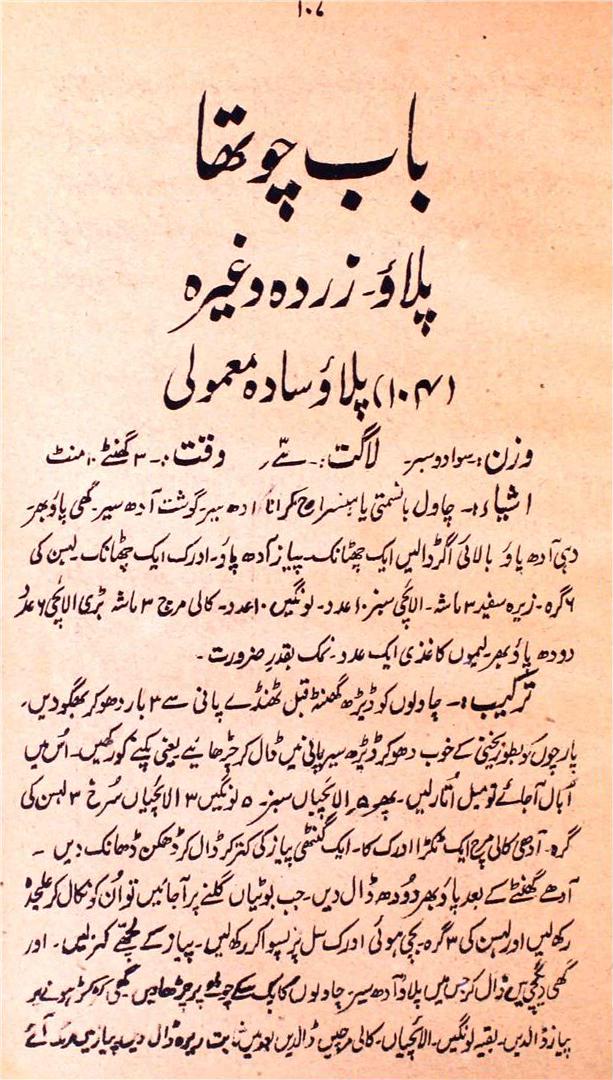 ۱۰۷
باب چوتھا
پلاؤ۔ زردہ وغیرہ
(۱۰۴) پلاؤ سادہ معمولی
وزن:۔ سوا دو سیر۔ لاگت:۔ وقت:۔ ۳ گھنٹے ۱۰ منٹ
اشیاء:۔ چاول باسمتی یا ہنسراج آدھ سیر۔ گوشت آدھ سیر۔ گھی پاؤ بھر۔
دہی آدھ پاؤ بالائی اگر ڈالیں ایک چھٹانک۔ پیاز آدھ پاؤ۔ ادرک ایک چھٹانک۔ لہسن کی
۶ گرہ۔ زیرہ سفید ۳ ماشہ۔ الائچی سبز ۱۰ عدد۔ لونگیں ۱۰ عدد۔ کالی مرچ ۳ ماشہ بڑی الائچی ۶ عدد
دودھ پاؤ بھر۔ لیموں کاغذی ایک عدد۔ نمک بقدر ضرورت۔
ترکیب:۔ چاولوں کو ڈیڑھ گھنٹہ قبل ٹھنڈے پانی سے ۳ بار دھو کر بھگو دیں۔
پارچوں کو بطور یخنی کے خوب دھو کر ڈیڑھ سیر پانی میں ڈال کر چڑھائیے یعنی پکنے کو رکھیں۔ اس میں
اُبال آجائے تو میل اُتار لیں۔ پھر ۵ الائچیاں سبز۔ ۵ لونگیں ۳ الائچیاں سُرخ ۳ لہسن کی
گرہ۔ آدھی کالی مرچ ایک ٹکڑا ادرک کا۔ ایک گنٹھی پیاز کی کتر کر ڈال کر ڈھکن ڈھانک دیں۔
آدھے گھنٹے کے بعد پاؤ بھر دودھ ڈال دیں۔ جب بوٹیاں گلنے پر آجائیں تو اُن کو نکال کر علیحدہ
رکھ لیں اور لہسن کی ۳ گرہ بچی ہوئی ادرک سل پر پسوا کر رکھ لیں۔ پیاز کے لچھے کتر لیں۔ اور
گھی دیگچی میں ڈال کر جس میں پلاؤ آدھ سیر چاولوں کا پک سکے چولہے پر چڑھا دیں گھی کڑکڑ ہونے پر
پیاز ڈالدیں۔ بقیہ لونگیں۔ الائچیاں۔ کالی مرچیں ڈالدیں بعد میں ثابت زیرہ ڈال دیں۔ پیاز میں رنگ آئے